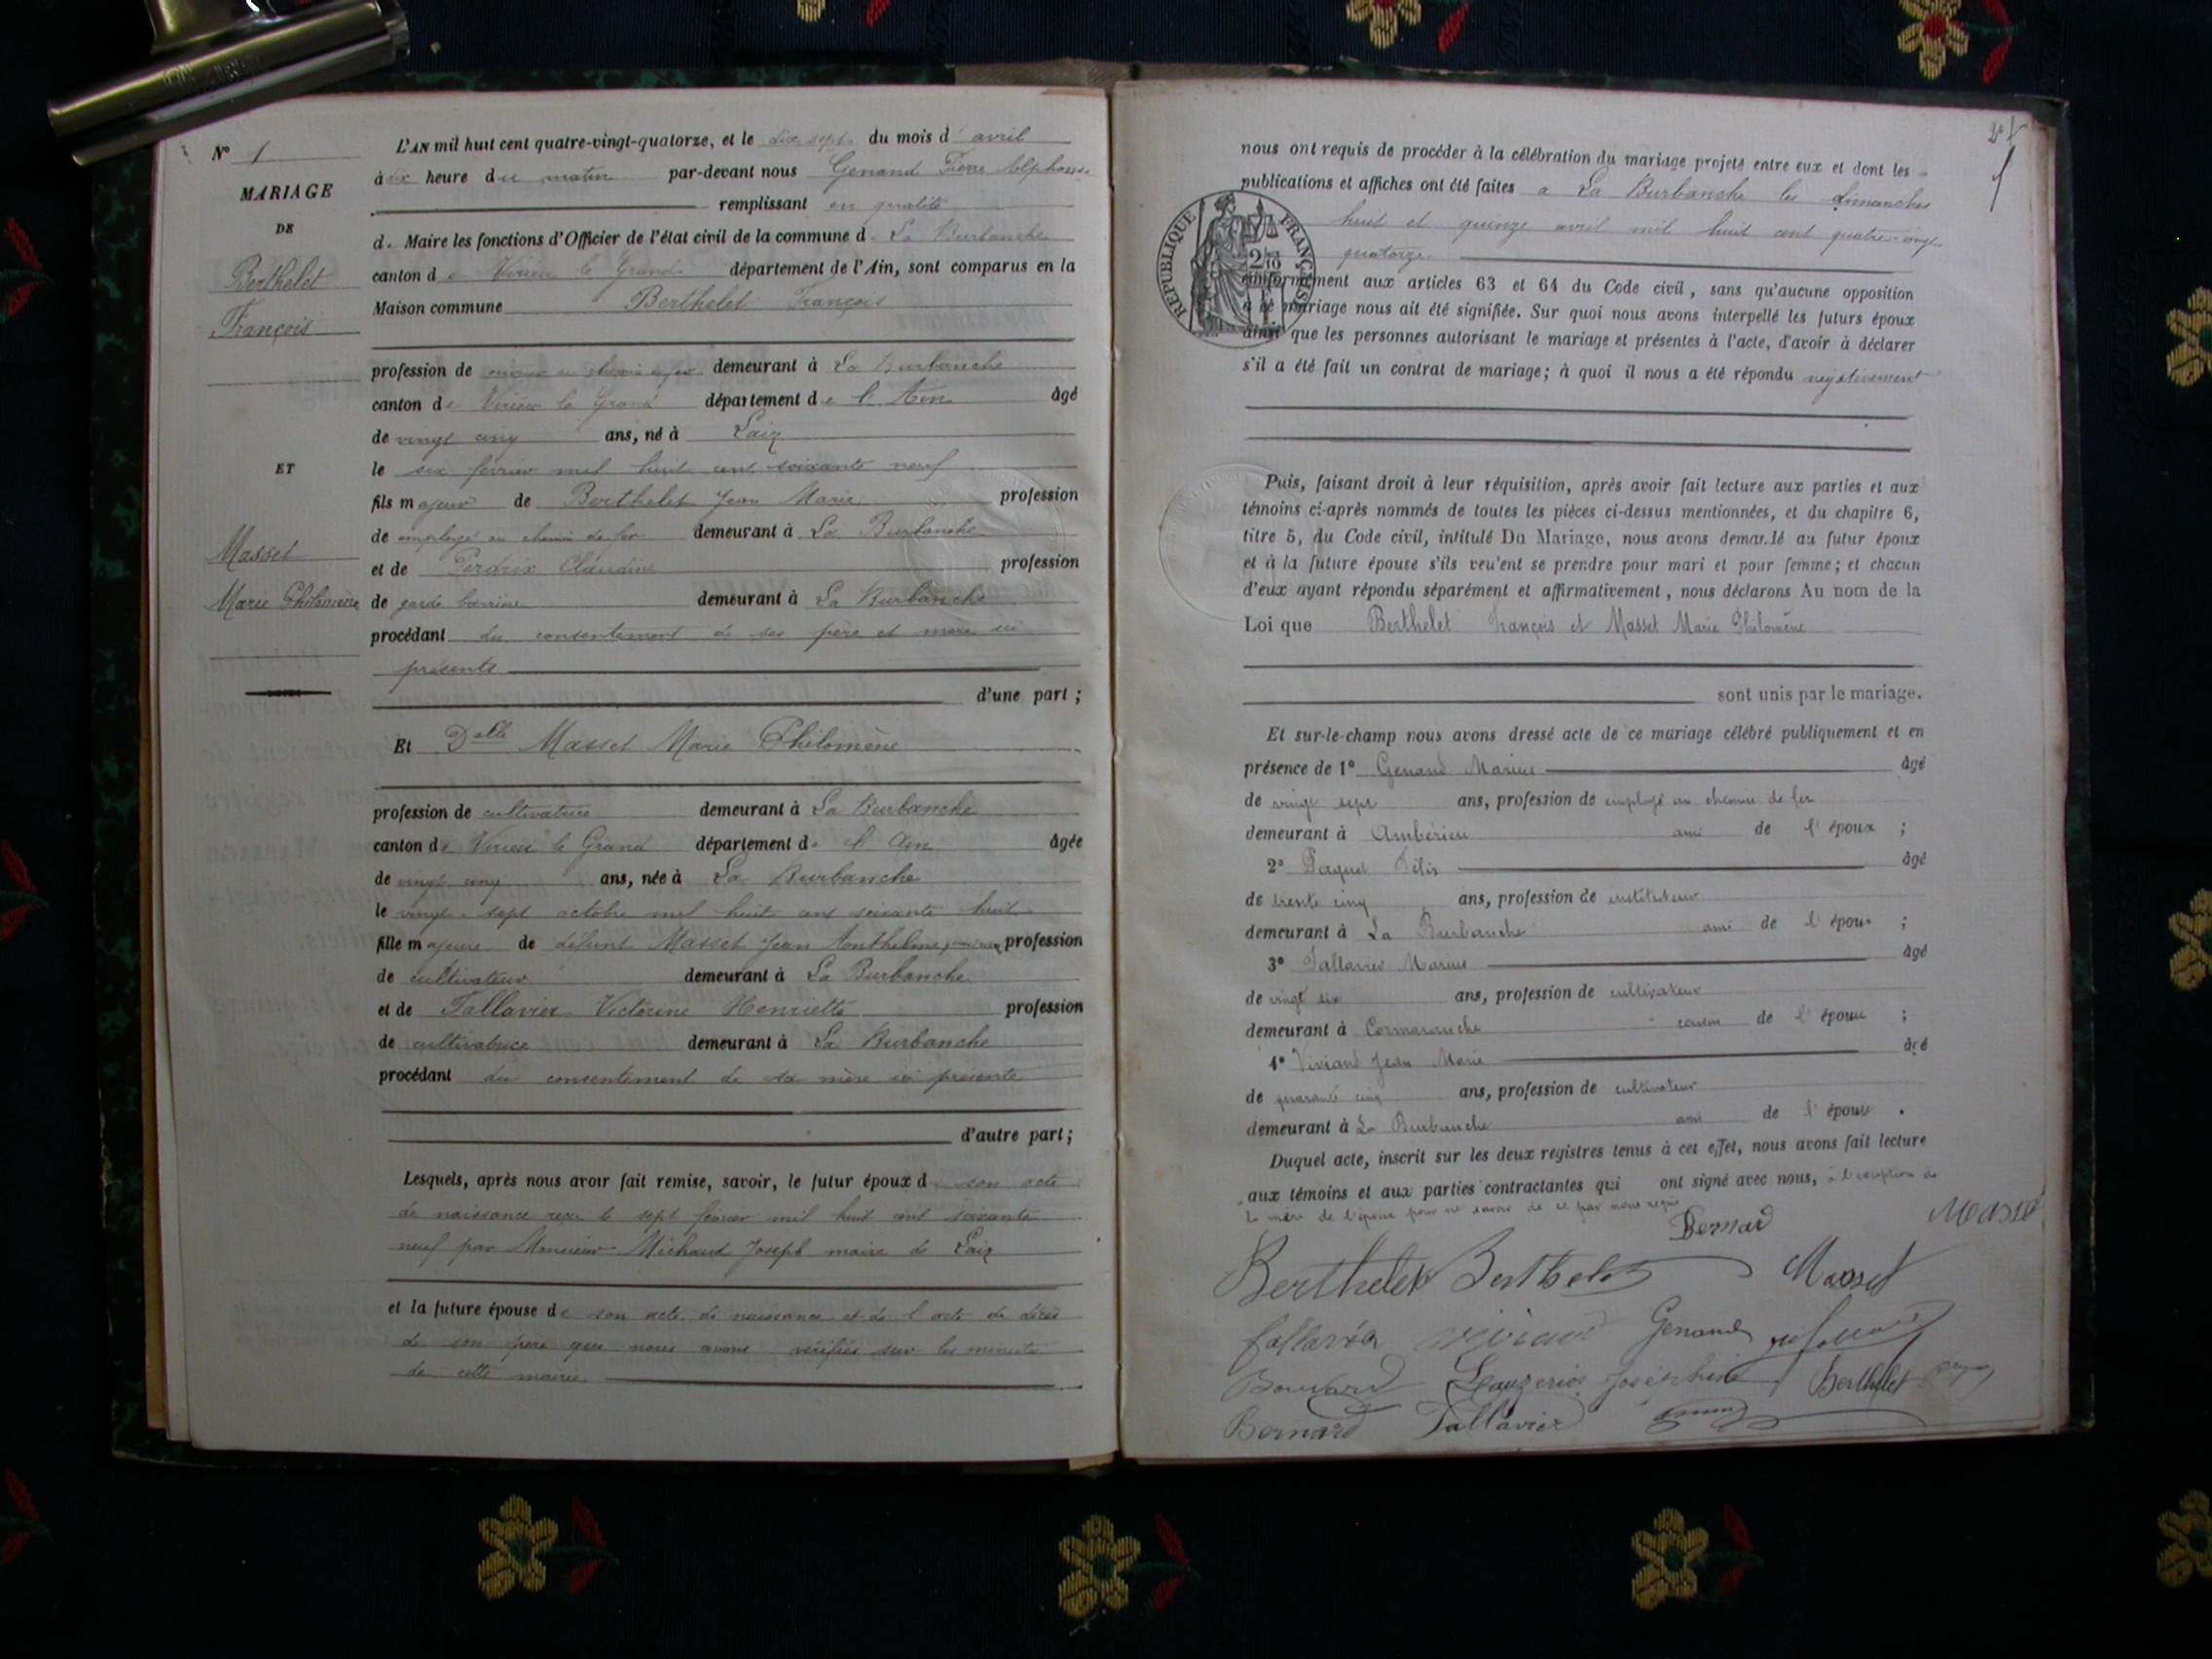 N° 1
MARIAGE
DE
Berthelet
François
ET
Masset
Marie Philomène
L'AN mil huit cent quatre-vingt-quatorze, et le dix sept du mois d'avril
à dix heure du matin par-devant nous Genand Pierre Alphonse
remplissant en qualité
de Maire les fonctions d'Officier de l'état civil de la commune de La Burbanche
canton de Virieu le Grand département de l'Ain, sont comparus en la
Maison commune Berthelet François
profession de au chemin de fer demeurant à La Burbanche
canton de Virieu le Grand département de l'Ain âgé
de vingt cinq ans, né à Laiz
le six février mil huit cent soixante neuf
fils majeur de Berthelet Jean Marie profession
de employé au chemin de fer demeurant à La Burbanche
et de Perdrix Claudine profession
de garde barrière demeurant à La Burbanche
procédant du consentement de ses père et mère ici
présents
d'une part ;
Et Delle Masset Marie Philomène
profession de cultivatrice demeurant à La Burbanche
canton de Virieu le Grand département de l'Ain âgée
de vingt cinq ans, née à La Burbanche
le vingt sept octobre mil huit cent soixante huit
fille majeure de défunt Masset Jean Anthelme, profession
de cultivateur demeurant à La Burbanche
et de Tallavier Victorine Henriette profession
de cultivatrice demeurant à La Burbanche
procédant du consentement de sa mère ici présente
d'autre part ;
Lesquels, après nous avoir fait remise, savoir, le futur époux de son acte
de naissance reçu le sept février mil huit cent soixante
neuf par Monsieur Michaud Joseph maire de Laiz
et la future épouse de son acte de naissance et de l'acte de décès
de son père que nous avons vérifiés sur les minutes
de cette mairie
nous ont requis de procéder à la célébration du mariage projeté entre eux et dont les
publications et affiches ont été faites a La Burbanche les dimanches
huit et quinze avril mil huit cent quatre-vingt
quatorze
RÉPUBLIQUE FRANÇAISE
conformément aux articles 63 et 64 du Code civil, sans qu'aucune opposition
à ce mariage nous ait été signifiée. Sur quoi nous avons interpellé les futurs époux
ainsi que les personnes autorisant le mariage et présentes à l'acte, d'avoir à déclarer
s'il a été fait un contrat de mariage; à quoi il nous a été répondu négativement
Puis, faisant droit à leur réquisition, après avoir fait lecture aux parties et aux
témoins ci-après nommés de toutes les pièces ci-dessus mentionnées, et du chapitre 6,
titre 5, du Code civil, intitulé Du Mariage, nous avons demandé au futur époux
et à la future épouse s'ils veulent se prendre pour mari et pour femme; et chacun
d'eux ayant répondu séparément et affirmativement, nous déclarons Au nom de la
Loi que Berthelet François et Masset Marie Philomène
sont unis par le mariage.
Et sur-le-champ nous avons dressé acte de ce mariage célébré publiquement et en
présence de 1° Genand Marius âgé
de vingt sept ans, profession de employé au chemin de fer
demeurant à Ambérieu ami de l'époux ;
2° Paquet Félix âgé
de trente cinq ans, profession de instituteur
demeurant à La Burbanche ami de l'époux ;
3° Tallavier Marius âgé
de vingt six ans, profession de cultivateur
demeurant à Cormaranche cousin de l'épouse ;
4° Viviand Jean Marie âgé
de quarante cinq ans, profession de cultivateur
demeurant à La Burbanche ami de l'épouse .
Duquel acte, inscrit sur les deux registres tenus à cet effet, nous avons fait lecture
aux témoins et aux parties contractantes qui ont signé avec nous, à l'exception de
la mère de l'époux pour ne savoir de ce par nous requis
Bernard Masset
Berthelet Berthelet Masset
Tallavier Genand
Bouvard Josephine Berthelet
Bernard Tallavier